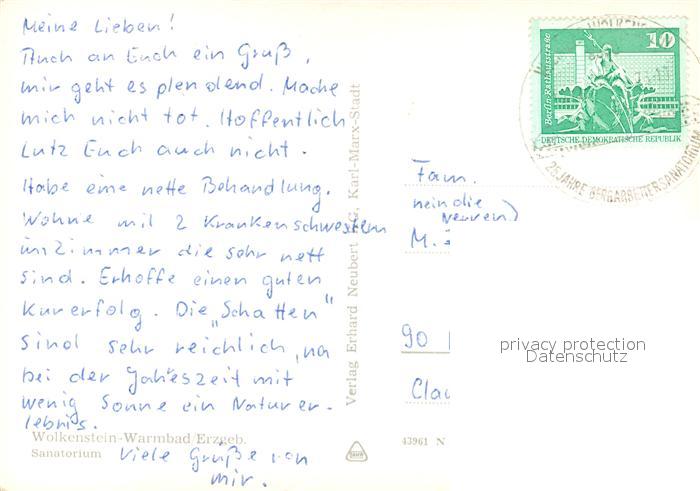 Meine Lieben!
Auch an Euch ein Gruß,
mir geht es plendend. Mache
mich nicht tot. Hoffentlich
Lutz Euch auch nicht.
Habe eine nette Behandlung.
Wohne mit 2 Krankenschwestern
im Zimmer die sehr nett
sind. Erhoffe einen guten
Kurerfolg. Die „Schatten"
sind sehr reichlich, na
bei der Jahreszeit mit
wenig Sonne ein Naturer-
lebnis.
Viele Grüße von
mir.
Wolkenstein-Warmbad/Erzgeb.
Sanatorium
Verlag Erhard Neubert KG, Karl-Marx-Stadt
43961 N
Berlin, Rathausstraße
10
DEUTSCHE DEMOKRATISCHE REPUBLIK
25 JAHRE BERGARBEITER-SANATORIUM
Fam.
nein die
Nerven)
M.
90
Clau
privacy protection
Datenschutz